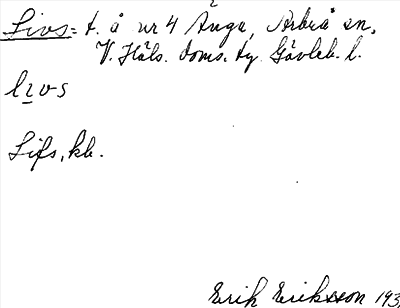 Livs = t. å nr 4 Änga, Arbrå sn,
V. Häls. doms. Gävleb. l.
livs
Lifs, kb.
Erik Eriksson 193